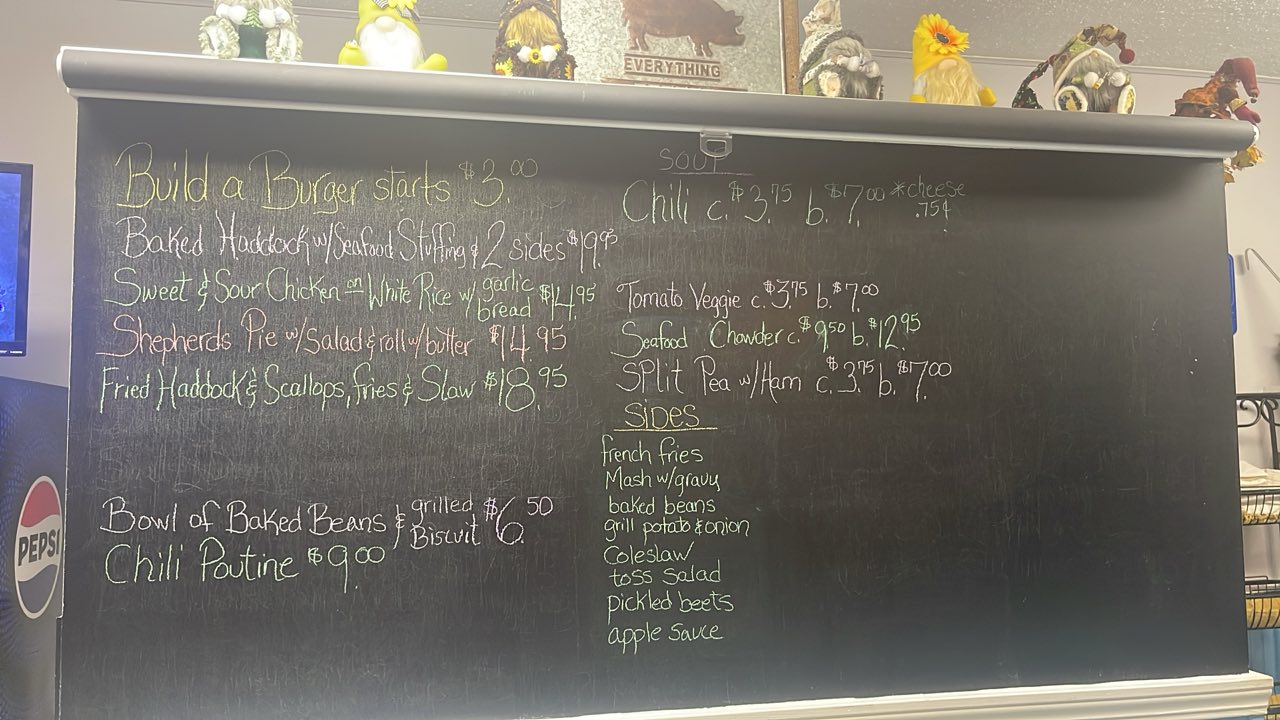 EVERYTHING
Build a Burger starts $3.00
Baked Haddock w/Seafood Stuffing & 2 sides $19.95
Sweet & Sour Chicken on White Rice w/ garlic bread $14.95
Shepherds Pie w/Salad & roll w/butter $14.95
Fried Haddock & Scallops, fries & Slaw $18.95
Bowl of Baked Beans & grilled Biscuit $6.50
Chili Poutine $9.00
SOUP
Chili c. $3.75 b. $7.00 *cheese .75¢
Tomato Veggie c. $3.75 b. $7.00
Seafood Chowder c. $9.50 b. $12.95
SPlit Pea w/Ham c. $3.75 b. $7.00
SiDES
french fries
Mash w/gravy
baked beans
grill potato & onion
Coleslaw
toss salad
pickled beets
apple sauce
PEPSI